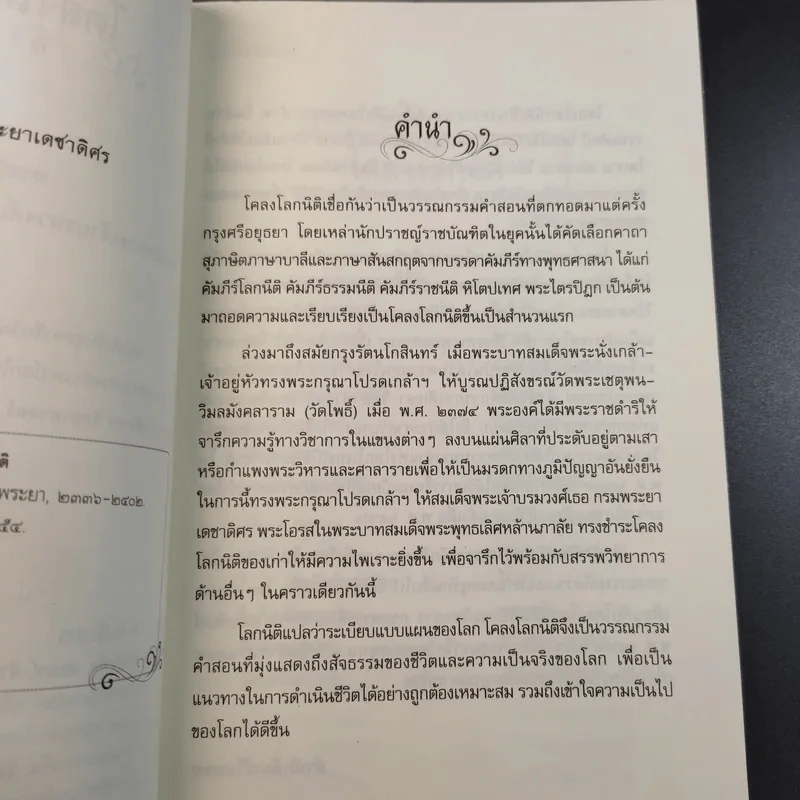 ะยาเดชาดิศร
ติ
พระยา, ๒๓๓๖-๒๔๐๒.
๕๔.
คำนำ
โคลงโลกนิติเชื่อกันว่าเป็นวรรณกรรมคำสอนที่ตกทอดมาแต่ครั้ง
กรุงศรีอยุธยา โดยเหล่านักปราชญ์ราชบัณฑิตในยุคนั้นได้คัดเลือกคาถา
สุภาษิตภาษาบาลีและภาษาสันสกฤตจากบรรดาคัมภีร์ทางพุทธศาสนา ได้แก่
คัมภีร์โลกนีติ คัมภีร์ธรรมนีติ คัมภีร์ราชนีติ หิโตปเทศ พระไตรปิฎก เป็นต้น
มาถอดความและเรียบเรียงเป็นโคลงโลกนิติขึ้นเป็นสำนวนแรก
ล่วงมาถึงสมัยกรุงรัตนโกสินทร์ เมื่อพระบาทสมเด็จพระนั่งเกล้า-
เจ้าอยู่หัวทรงพระกรุณาโปรดเกล้าฯ ให้บูรณปฏิสังขรณ์วัดพระเชตุพน-
วิมลมังคลาราม (วัดโพธิ์) เมื่อ พ.ศ. ๒๓๗๔ พระองค์ได้มีพระราชดำริให้
จารึกความรู้ทางวิชาการในแขนงต่างๆ ลงบนแผ่นศิลาที่ประดับอยู่ตามเสา
หรือกำแพงพระวิหารและศาลารายเพื่อให้เป็นมรดกทางภูมิปัญญาอันยั่งยืน
ในการนี้ทรงพระกรุณาโปรดเกล้าฯ ให้สมเด็จพระเจ้าบรมวงศ์เธอ กรมพระยา
เดชาดิศร พระโอรสในพระบาทสมเด็จพระพุทธเลิศหล้านภาลัย ทรงชำระโคลง
โลกนิติของเก่าให้มีความไพเราะยิ่งขึ้น เพื่อจารึกไว้พร้อมกับสรรพวิทยาการ
ด้านอื่นๆ ในคราวเดียวกันนี้
โลกนิติแปลว่าระเบียบแบบแผนของโลก โคลงโลกนิติจึงเป็นวรรณกรรม
คำสอนที่มุ่งแสดงถึงสัจธรรมของชีวิตและความเป็นจริงของโลก เพื่อเป็น
แนวทางในการดำเนินชีวิตได้อย่างถูกต้องเหมาะสม รวมถึงเข้าใจความเป็นไป
ของโลกได้ดีขึ้น